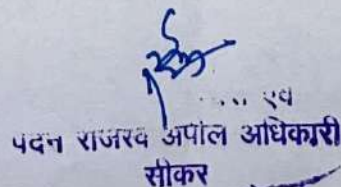 एवं
पदेन राजस्व अपील अधिकारी
सीकर